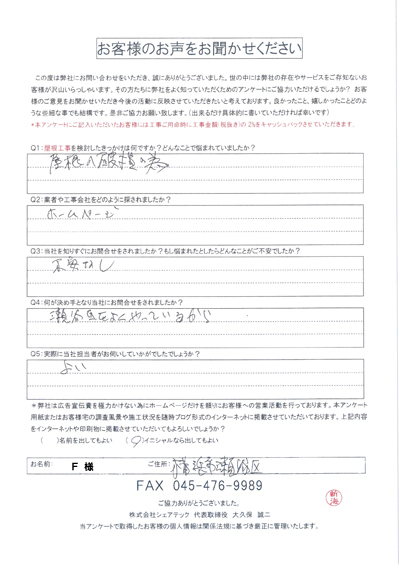 お客様のお声をお聞かせください
この度は弊社にお問い合わせをいただき、誠にありがとうございました。世の中には弊社の存在やサービスをご存知ないお
客様が沢山いらっしゃいます。その方たちに弊社をよく知っていただくためのアンケートにご協力いただけるでしょうか? お客
様のご意見をお聞かせいただき今後の活動に反映させていただきたいと考えております。良かったこと、嬉しかったことどのよ
うな些細な事でも結構です。是非ご協力お願い致します。(出来るだけ具体的に書いていただければ幸いです)
*本アンケートにご記入いただいたお客様には工事ご用命時に工事金額(税抜き)の2%をキャッシュバックさせていただきます。
Q1:屋根工事を検討したきっかけは何ですか?どんなことで悩まれていましたか?
屋根の破損の為
Q2:業者や工事会社をどのように探されましたか?
ホームページ
Q3:当社を知りすぐにお問合せをされましたか?もし悩まれたとしたらどんなことがご不安でしたか?
不安なし
Q4:何が決め手となり当社にお問合せをされましたか?
瀬谷区をよくやっているから
Q5:実際に当社担当者がお伺いしていかがでしたでしょうか?
よい
*弊社は広告宣伝費を極力かけない為にホームページだけを頼りにお客様への営業活動を行っております。本アンケート
用紙またはお客様宅の調査風景や施工状況を随時ブログ形式のインターネットに掲載させていただいております。上記内容
をインターネットや印刷物に掲載させていただいてもよろしいでしょうか?
( )名前を出してもよい (○)イニシャルなら出してもよい
お名前: F 様 ご住所: 横浜市瀬谷区
FAX 045-476-9989
ご協力ありがとうございました。
株式会社シェアテック 代表取締役 大久保 誠二
当アンケートで取得したお客様の個人情報は関係法規に基づき厳正に管理いたします。